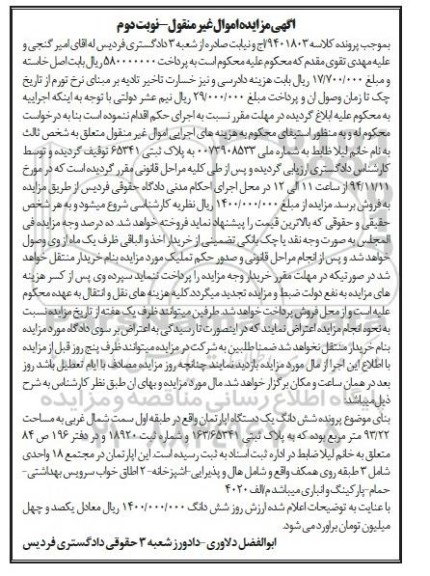 آگهی مزایده اموال غیر منقول – نوبت دوم
بموجب پرونده کلاسه ۹۴۰۱۸۰۳/ج و نیابت صادره از شعبه ۳ دادگستری فردیس له آقای امیر گنجی و
علیه مهدی تقوی مقدم که محکوم علیه محکوم است به پرداخت ۵۸۰۰۰۰۰۰۰ ریال بابت اصل خاسته
و مبلغ ۱۷/۷۰۰/۰۰۰ ریال بابت هزینه دادرسی و نیز خسارت تاخیر تادیه بر مبنای نرخ تورم از تاریخ
چک تا زمان وصول ان و پرداخت مبلغ ۲۹/۰۰۰/۰۰۰ ریال نیم عشر دولتی با توجه به اینکه اجراییه
به محکوم علیه ابلاغ گردیده در مهلت مقرر نسبت به اجرای حکم اقدام ننموده است بنا به درخواست
محکوم له و به منظور استیفای محکوم به هزینه های اجرایی اموال غیر منقول متعلق به شخص ثالث
به نام خانم لیلا طابط به شماره ملی ۰۰۷۳۹۰۸۵۳۳ به پلاک ثبتی ۶۵۳۴۱ توقیف گردیده و توسط
کارشناس دادگستری ارزیابی گردیده و پس از طی کلیه مراحل قانونی مقرر گردیده است که در مورخ
۹۴/۱۱/۱۱ از ساعت ۱۱ الی ۱۲ در محل اجرای احکام مدنی دادگاه حقوقی فردیس از طریق مزایده
به فروش برسد. مزایده از مبلغ ۱/۴۰۰/۰۰۰/۰۰۰ ریال نظریه کارشناسی شروع میشود و به هر شخص
حقیقی و حقوقی که بالاترین قیمت را پیشنهاد نماید فروخته خواهد شد. ده درصد وجه مزایده فی
المجلس به صورت وجه نقد یا چک بانکی تضمینی از خریدار اخذ و الباقی ظرف یک ماه از وی وصول
خواهد شد. و پس از انجام مراحل قانونی و صدور حکم تملیک مورد مزایده بنام خریدار منتقل خواهد
شد در صورتیکه در مهلت مقرر خریدار وجه مزایده را پرداخت ننماید سپرده وی پس از کسر هزینه
های مزایده به نفع دولت ضبط و مزایده تجدید میگردد. کلیه هزینه های نقل و انتقال به عهده محکوم
علیه است و از محل فروش پرداخت خواهد شد. طرفین میتوانند ظرف یک هفته از تاریخ مزایده نسبت
به نحوه انجام مزایده اعتراض نمایند که در اینصورت تا رسیدگی به اعتراض بر سوی دادگاه مورد مزایده
بنام خریدار منتقل نخواهد شد ضمنا طالبین به شرکت در مزایده میتوانند ظرف پنج روز قبل از مزایده
با اطلاع این اجرا از مال مورد مزایده بازدید نمایند چنانچه روز مزایده مصادف با ایام تعطیل باشد روز
بعد در همان ساعت و مکان برگزار خواهد شد. مال مورد مزایده و بهای ان طبق نظر کارشناس به شرح
ذیل میباشد.
بنای موضوع پرونده شش دانگ یک دستگاه اپارتمان واقع در طبقه اول سمت شمال غربی به مساحت
۹۳/۲۲ متر مربع بوده که به پلاک ثبتی ۱۶۳/۶۵۳۴۱ و شماره ثبت ۱۸۹۲۰ و در دفتر ۱۹۶ ص ۸۴
متعلق به خانم لیلا ضابط در اداره ثبت اسناد به ثبت رسیده است. این اپارتمان در مجتمع ۱۸ واحدی
شامل ۳ طبقه روی همکف واقع و شامل هال و پذیرایی-اشپزخانه-۲ اطاق خواب سرویس بهداشتی-
حمام-پارکینگ و انباری میباشد م/الف ۴۰۲۰
با عنایت به توضیحات اعلام شده ارزش روز شش دانگ ۱/۴۰۰/۰۰۰/۰۰۰ ریال معادل یکصد و چهل
میلیون تومان براورد می شود.
ابوالفضل دلاوری-دادورز شعبه ۳ حقوقی دادگستری فردیس
پایگاه اطلاع رسانی مناقصه و مزایده